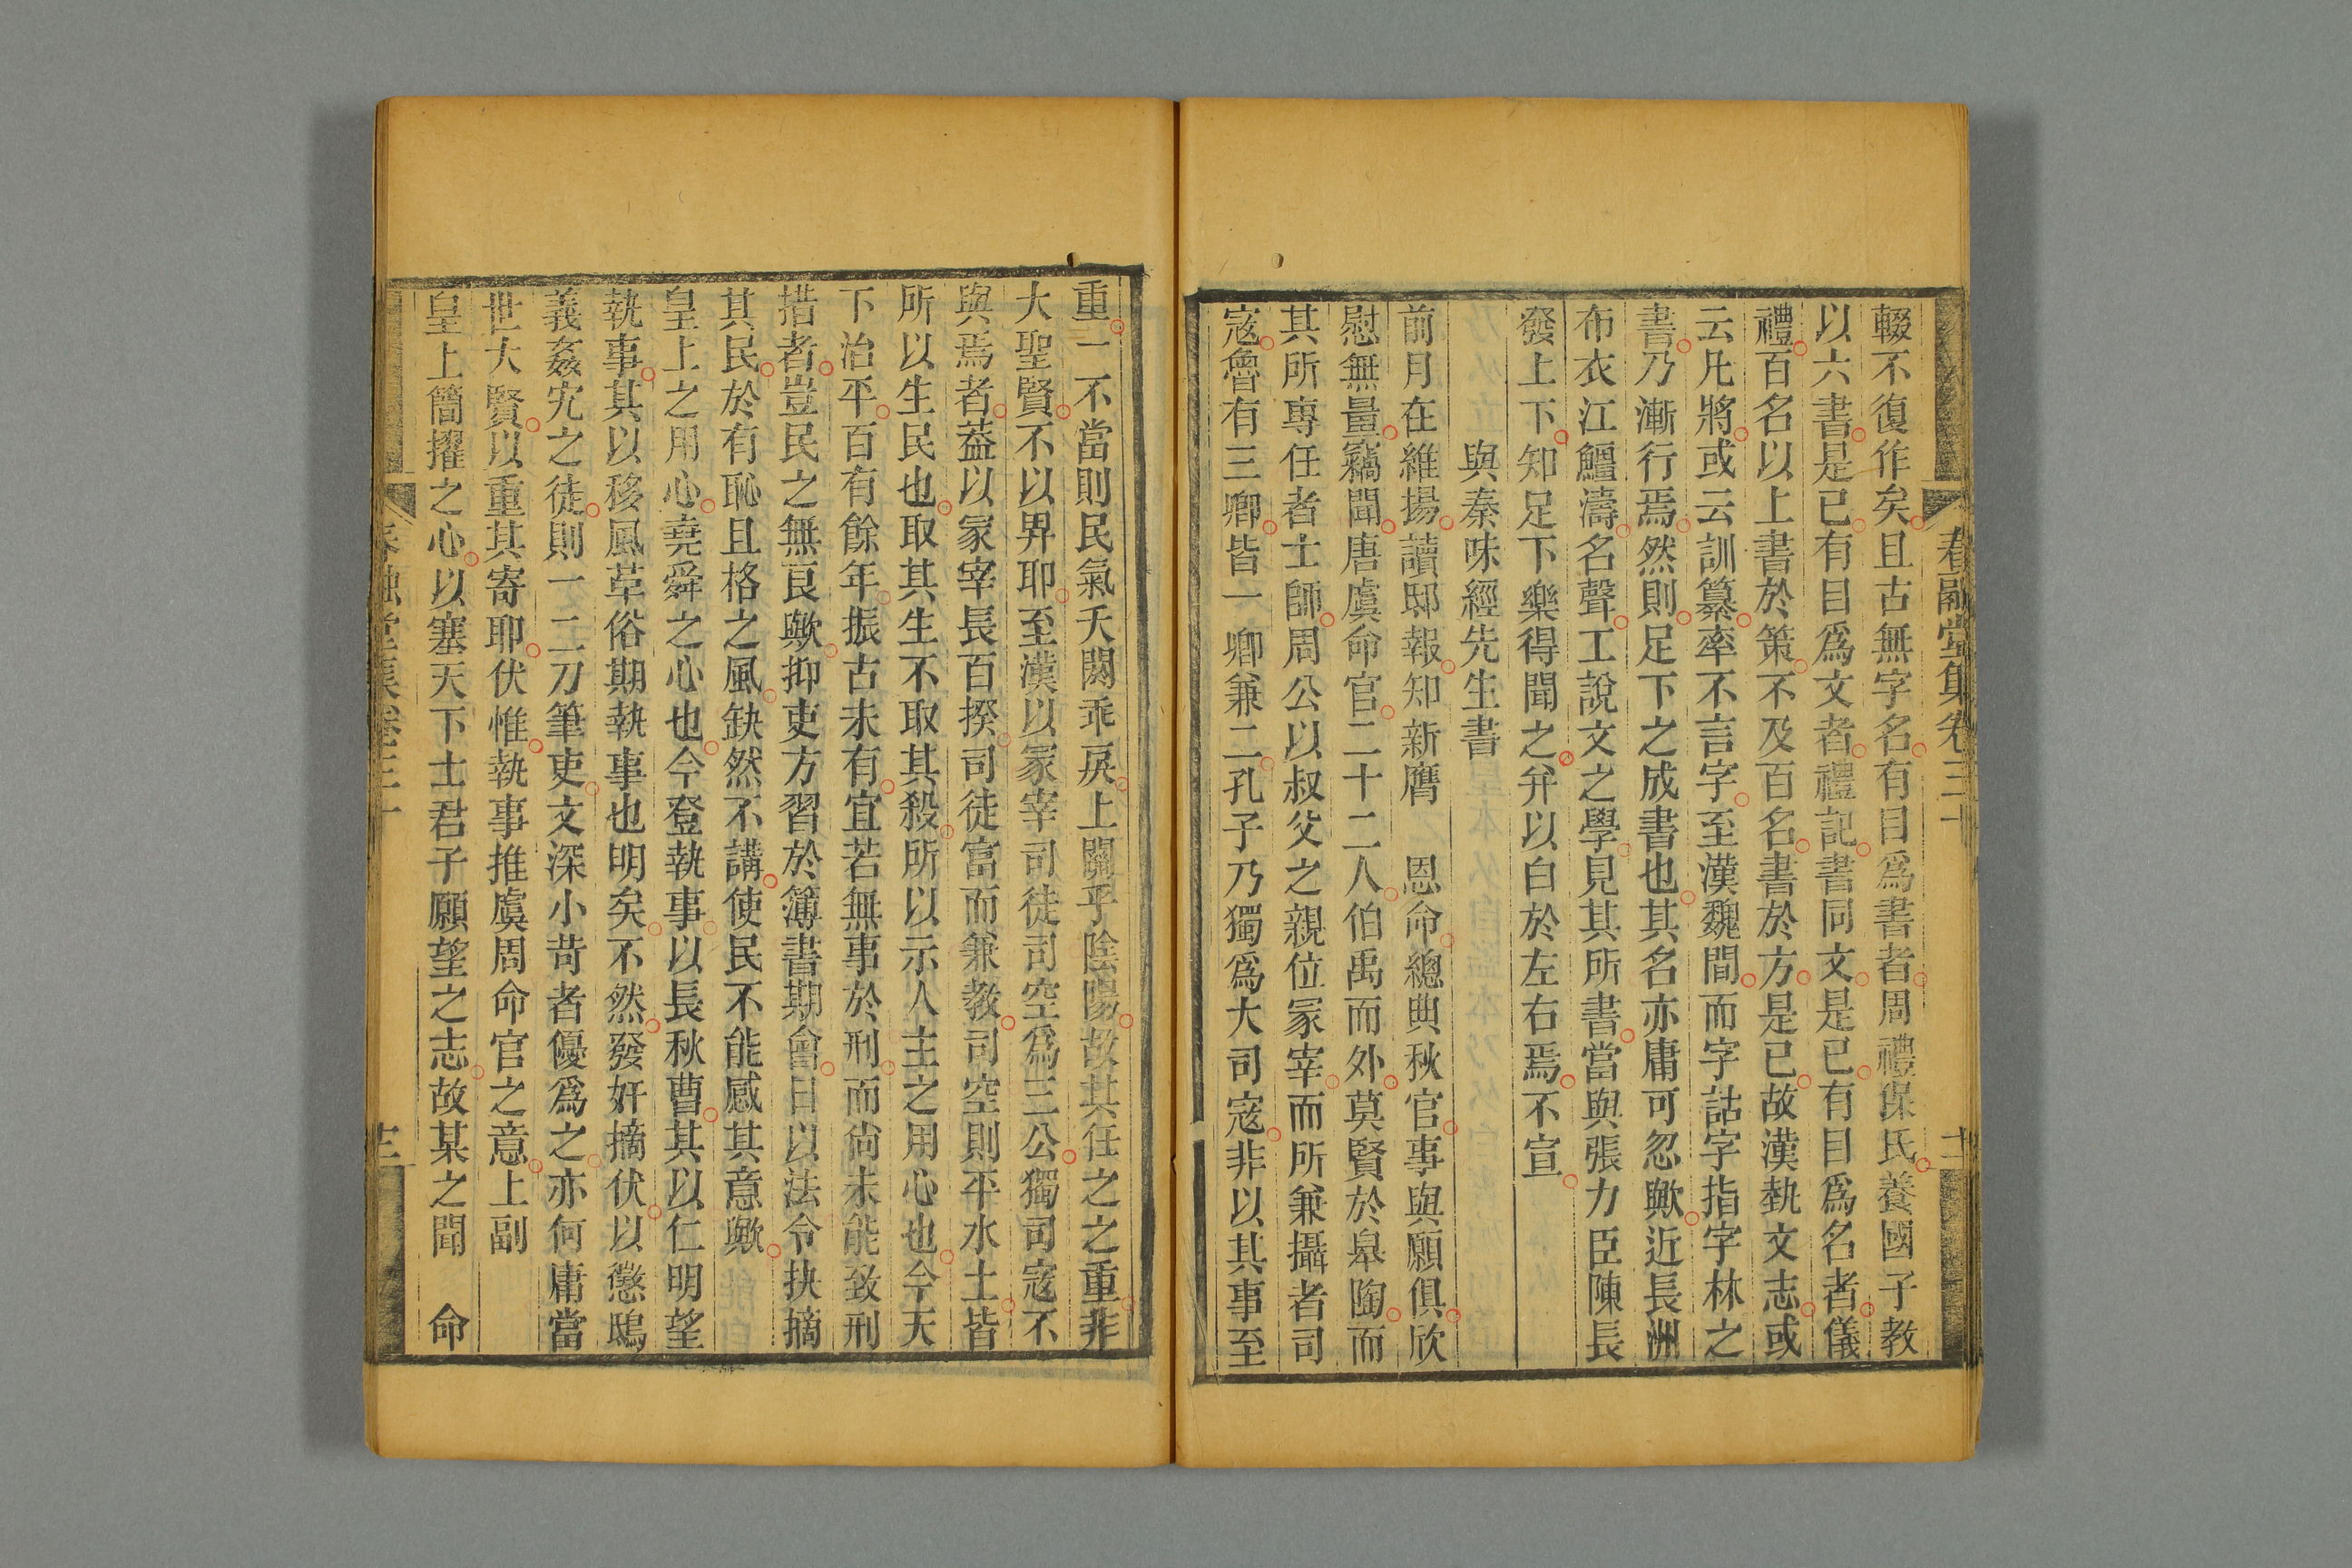 春融堂集卷三十
十二
輟不復作矣且古無字名有目爲書者周禮保氏養國子教
以六書是已有目爲文者禮記書同文是已有目爲名者儀
禮百名以上書於策不及百名書於方是已故漢執文志或
云凡將或云訓纂率不言字至漢魏間而字詁字指字林之
書乃漸行焉然則足下之成書也其名亦庸可忽歟近長洲
布衣江鱷濤名聲工說文之學見其所書當與張力臣陳長
發上下知足下樂得聞之弁以白於左右焉不宣
與秦味經先生書
前月在維揚讀邸報知新膺　恩命總典秋官事與願俱欣
慰無量竊聞唐虞命官二十二人伯禹而外莫賢於皋陶而
其所專任者士師周公以叔父之親位冢宰而所兼攝者司
寇魯有三卿皆一卿兼二孔子乃獨爲大司寇非以其事至
重一不當則民氣夭閼乖戾上關乎陰陽故其任之之重非
大聖賢不以畀耶至漢以冢宰司徒司空爲三公獨司寇不
與焉者葢以冢宰長百揆司徒富而兼教司空則平水土皆
所以生民也取其生不取其殺所以示人主之用心也今天
下治平百有餘年振古未有宜若無事於刑而尙未能致刑
措者豈民之無良歟抑吏方習於簿書期會日以法令抉摘
其民於有恥且格之風缺然不講使民不能感其意歟
皇上之用心堯舜之心也今登執事以長秋曹其以仁明望
執事其以移風革俗期執事也明矣不然發奸摘伏以懲鴟
義姦宄之徒則一二刀筆吏文深小苛者優爲之亦何庸當
世大賢以重其寄耶伏惟執事推虞周命官之意上副
皇上簡擢之心以塞天下士君子願望之志故某之聞　命
春融堂集卷三十
十三